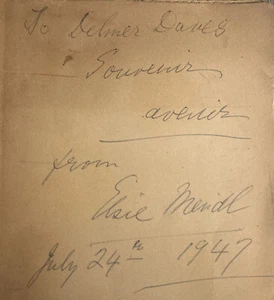 To Delmer Daves
Souvenir
avenir
from
Elsie Mendl
July 24th 1947